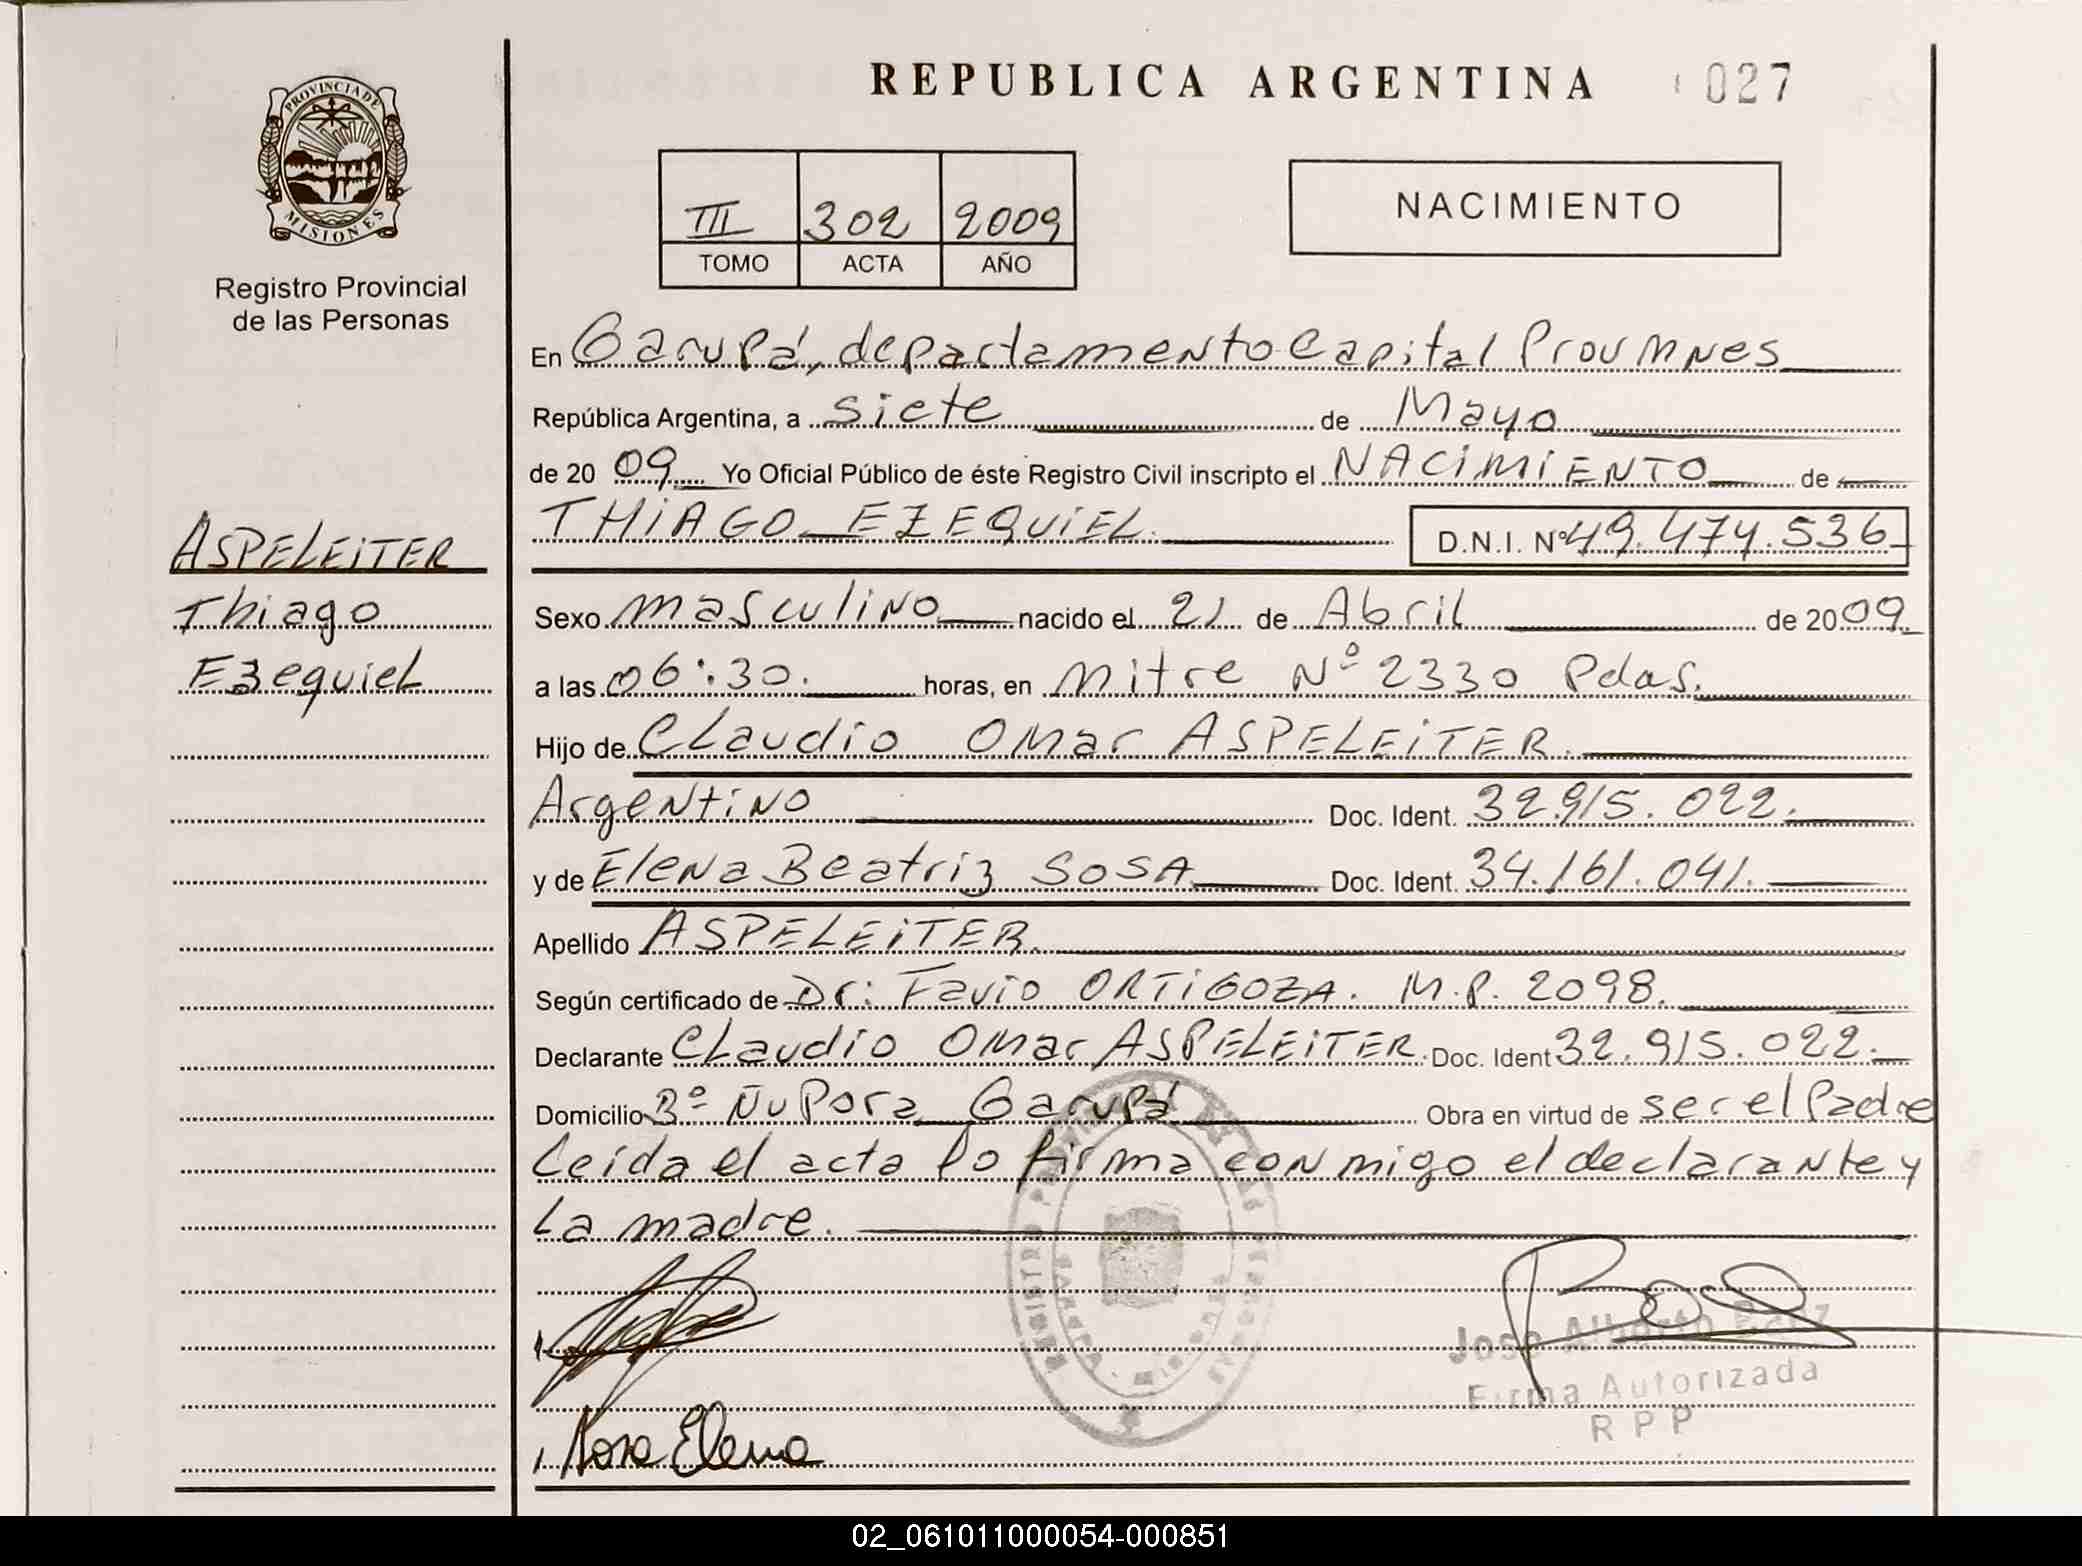 REPUBLICA ARGENTINA
027
PROVINCIA DE
MISIONES
Registro Provincial
de las Personas
III 302 2009
TOMO ACTA AÑO
NACIMIENTO
En Garupá, departamento Capital Prov Mnes
República Argentina, a siete de Mayo
de 2009 Yo Oficial Público de éste Registro Civil inscripto el NACIMIENTO de
THIAGO EZEQUIEL.
D.N.I. Nº 49.474.536
ASPELEITER
Thiago
Ezequiel
Sexo masculino nacido el 21 de Abril de 2009
a las 06:30. horas, en Mitre Nº 2330 Pdas.
Hijo de Claudio Omar ASPELEITER.
Argentino Doc. Ident. 32.915.022.
y de Elena Beatriz SOSA Doc. Ident. 34.161.041.
Apellido ASPELEITER.
Según certificado de Dr: Favio ORTIGOZA. M.P. 2098.
Declarante Claudio Omar ASPELEITER. Doc. Ident 32.915.022.
Domicilio Bº Ñu Pora Garupá Obra en virtud de ser el Padre
Leida el acta lo firma conmigo el declarante y
La madre.
Jose Alberto
Firma Autorizada
R P P
Elena
02_061011000054-000851